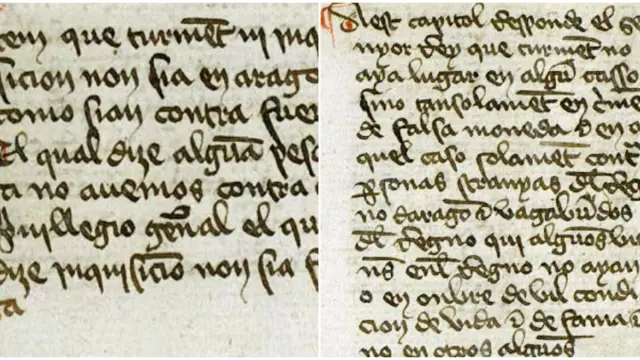 tem que turmēt ni inq
sicion non sia en arago
como sian contra fuer
El qual dize algūa pesq
ta no auemos contra
priuilegio gen̄al el qu
dize inquisiciō non sia f
ta
A est capitol Responde el Se
nyor Rey que turmēt no
aya lugar en algū casso
sino tansolamēt en c̄me
de falsa moneda & en a
quel caso solamēt cont
ꝑsonas stranyas dl̄ Reg
no daragō & vagabūdos
dl̄ Regno qui algūos bie
ns̄ enl̄ Regno no ayan
o en onbre de vil condi
cion de vida & de fama &
no en otros algūos